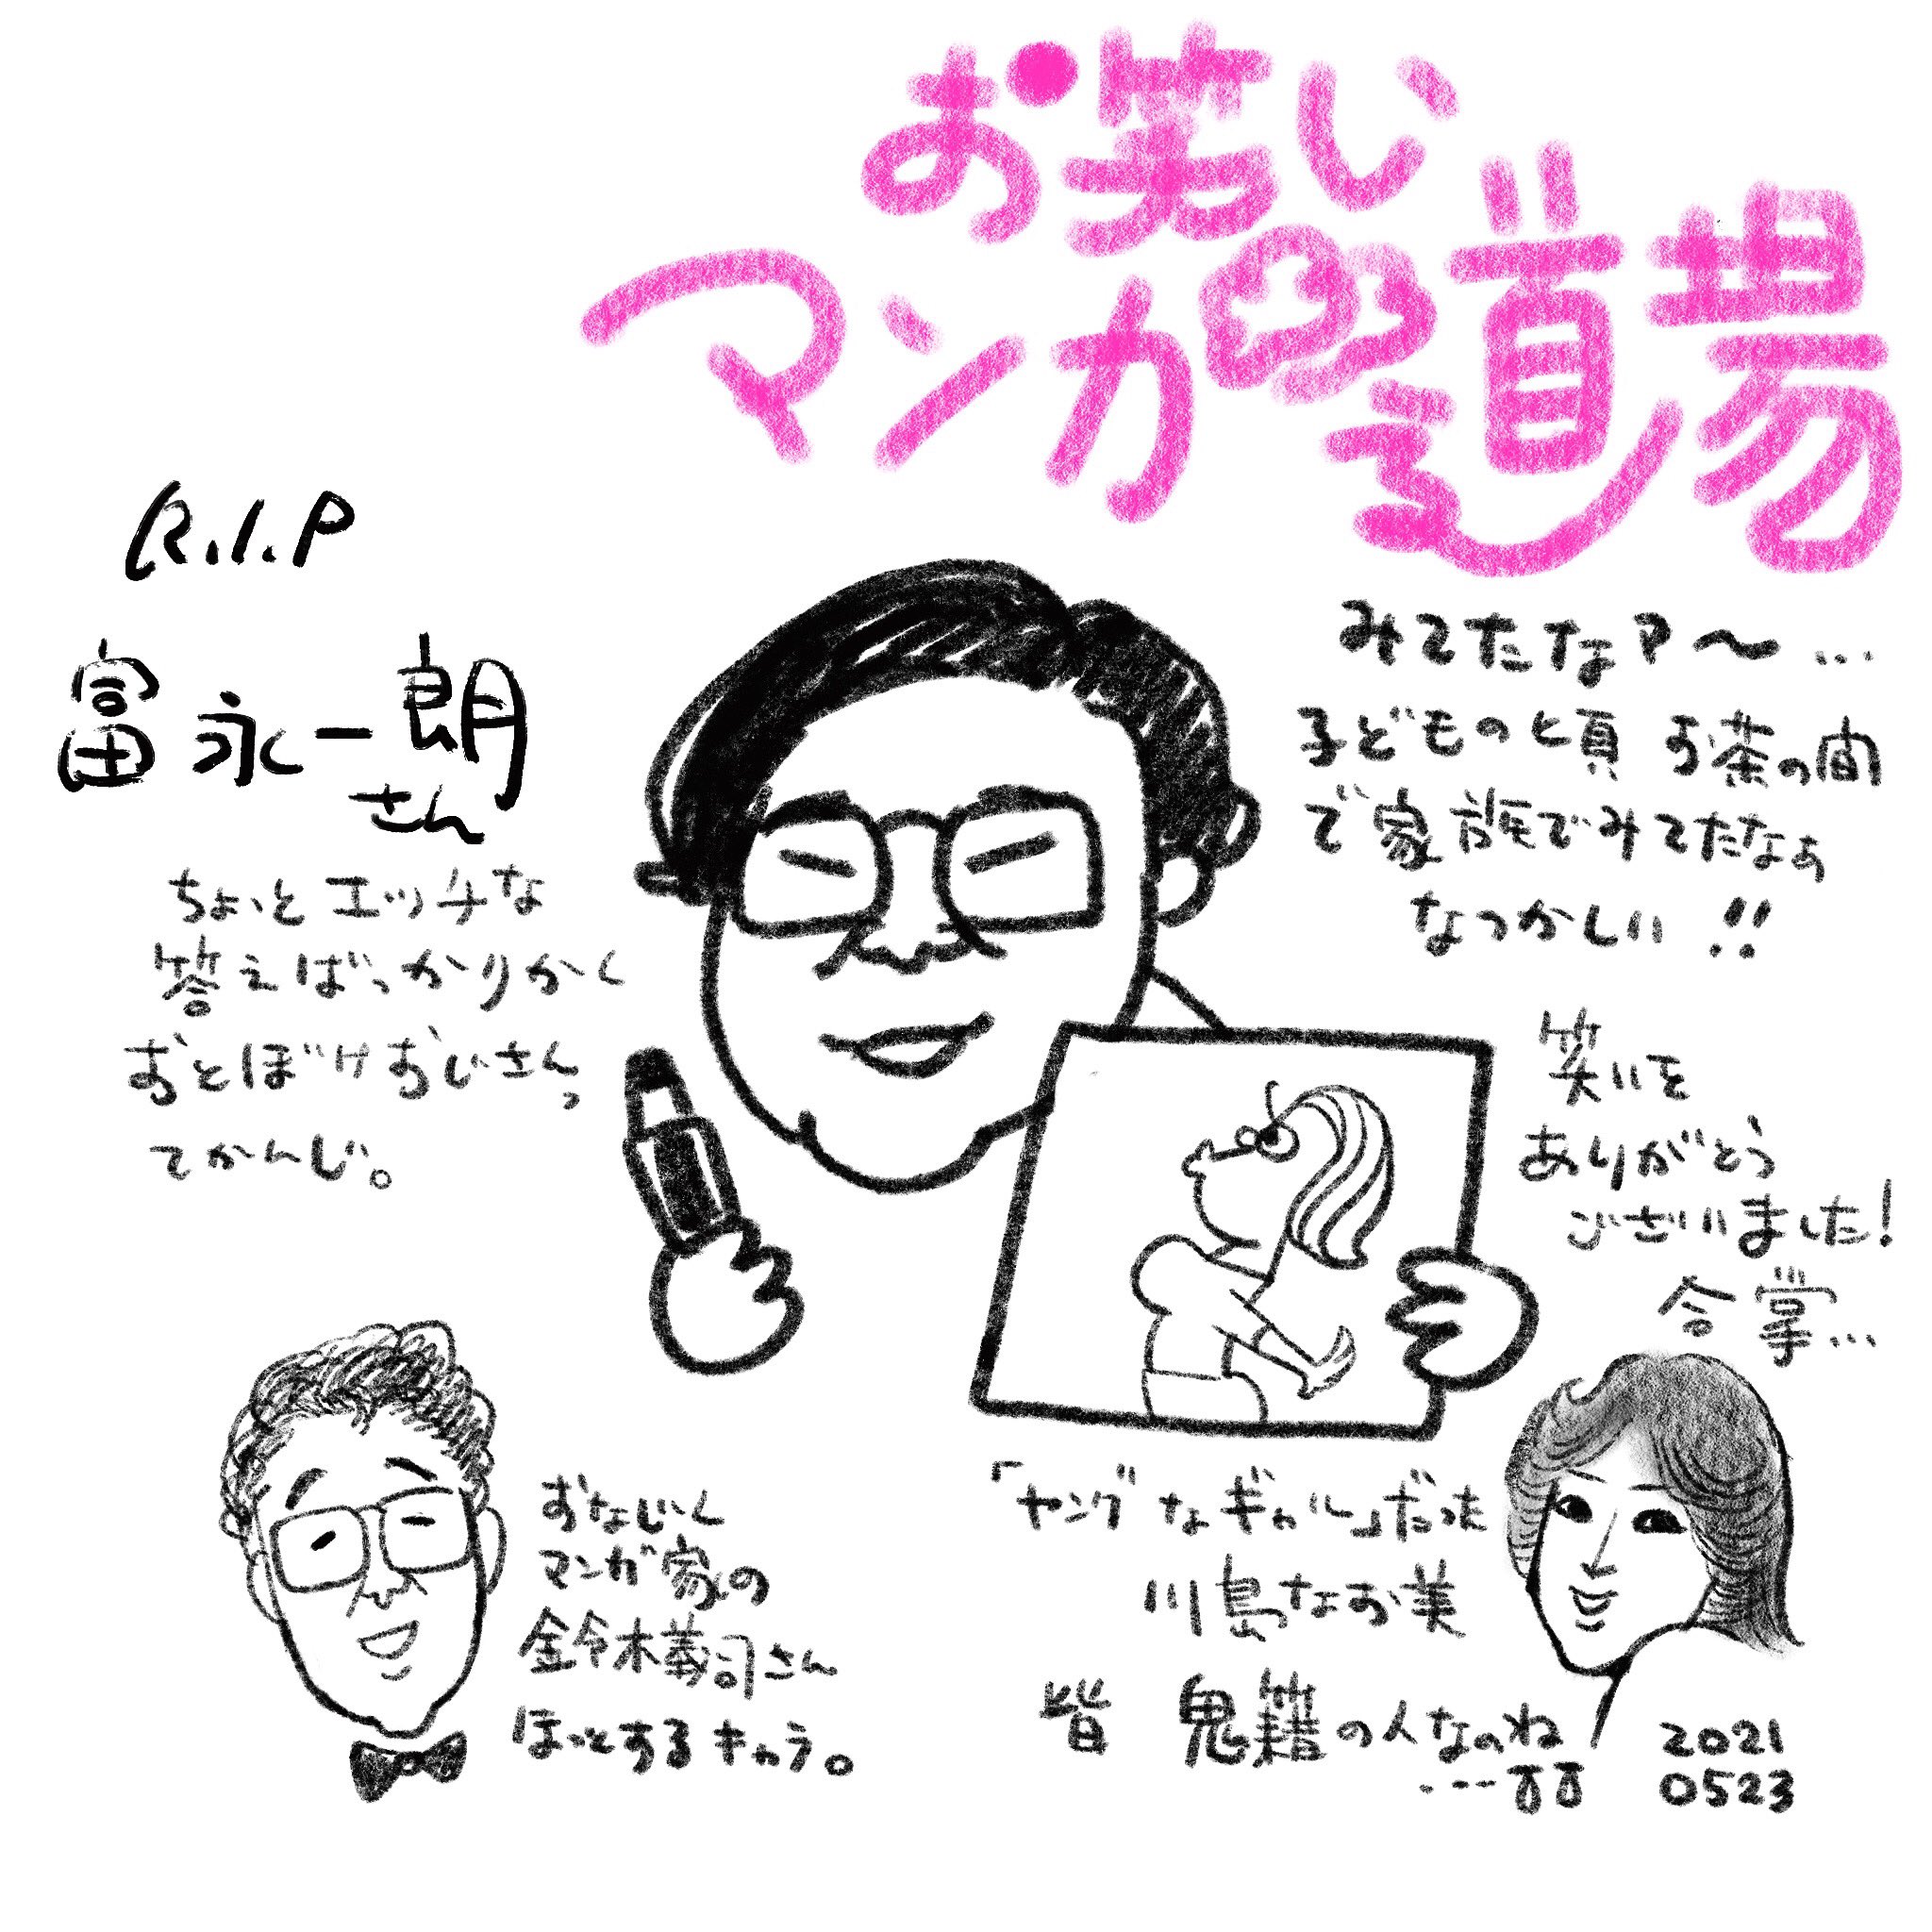 お笑い
マンガ道場
R.I.P
富永一朗
さん
ちょっとエッチな
答えばっかりかく
おとぼけおじさんっ
てかんじ。
みてたなァ〜…
子どもの頃 お茶の間
で家族でみてたなぁ
なつかしい!!
笑いを
ありがとう
ございました!
合掌…
おなじく
マンガ家の
鈴木義司さん
ほっとするキャラ。
「ヤングなギャル」だった
川島なお美
皆 鬼籍の人なのね
…
2021
0523